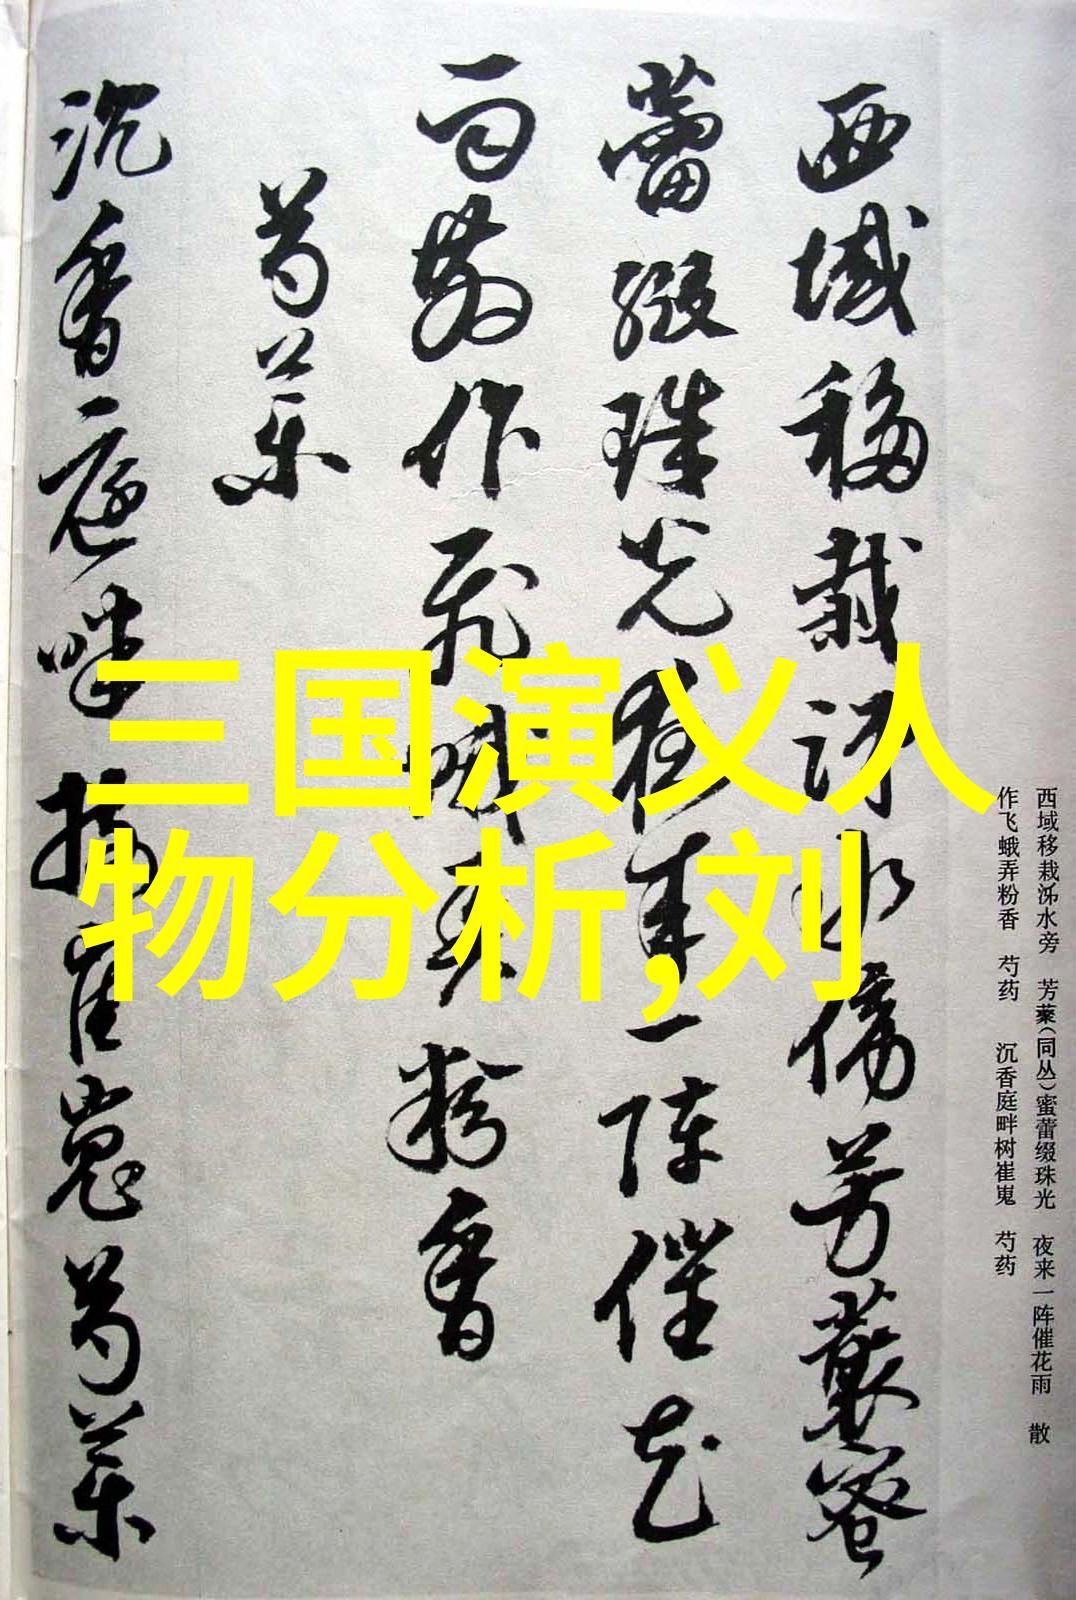 三国演义人
物分析,刘
西域移栽泲水旁 芳藂(同丛)蜜蕾缀珠光 夜来一阵催花雨 散
作飞蛾弄粉香 芍药 沉香庭畔树崔嵬 芍药
西域移栽泲水傍芳藂蜜
蕾缀珠光夜来一阵催花
雨散作飛蛾弄粉香
芍药
沉香庭畔樹崔嵬芍药